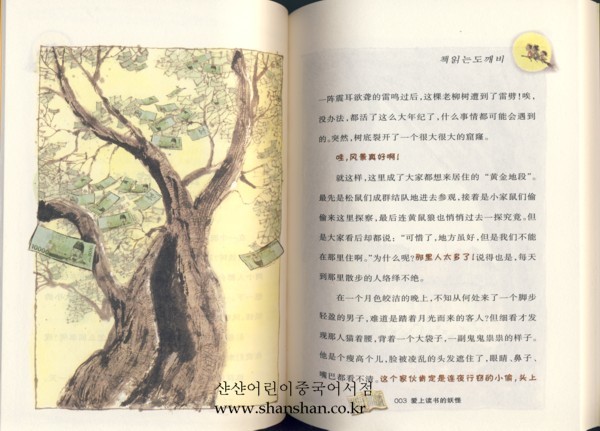 책읽는도깨비
一阵震耳欲聋的雷鸣过后，这棵老柳树遭到了雷劈！唉，
没办法，都活了这么大年纪了，什么事情都可能会遇到
的，突然，树底裂开了一个很大很大的窟窿。
哇，风景真好啊！
就这样，这里成了大家都想来居住的“黄金地段”。
最先是松鼠们成群结队地进去参观，接着是小家鼠们偷
偷来这里探察，最后连黄鼠狼也悄悄过去一探究竟。但
是大家看后却都说：“可惜了，地方虽好，但是我们不能
在那里住啊。”为什么呢？那里人太多了！说得也是，每天
到那里散步的人络绎不绝。
在一个月色皎洁的晚上，不知从何处来了一个脚步
轻盈的男子，难道是踏着月光而来的客人？但细看才发
现那人猫着腰，背着一个大袋子，一副鬼鬼祟祟的样子。
他是个瘦高个儿，脸被凌乱的头发遮住了，眼睛、鼻子、
嘴巴都看不清。这个家伙肯定是连夜行窃的小偷，头上
003 爱上读书的妖怪
샨샨어린이중국어서점
www.shanshan.co.kr